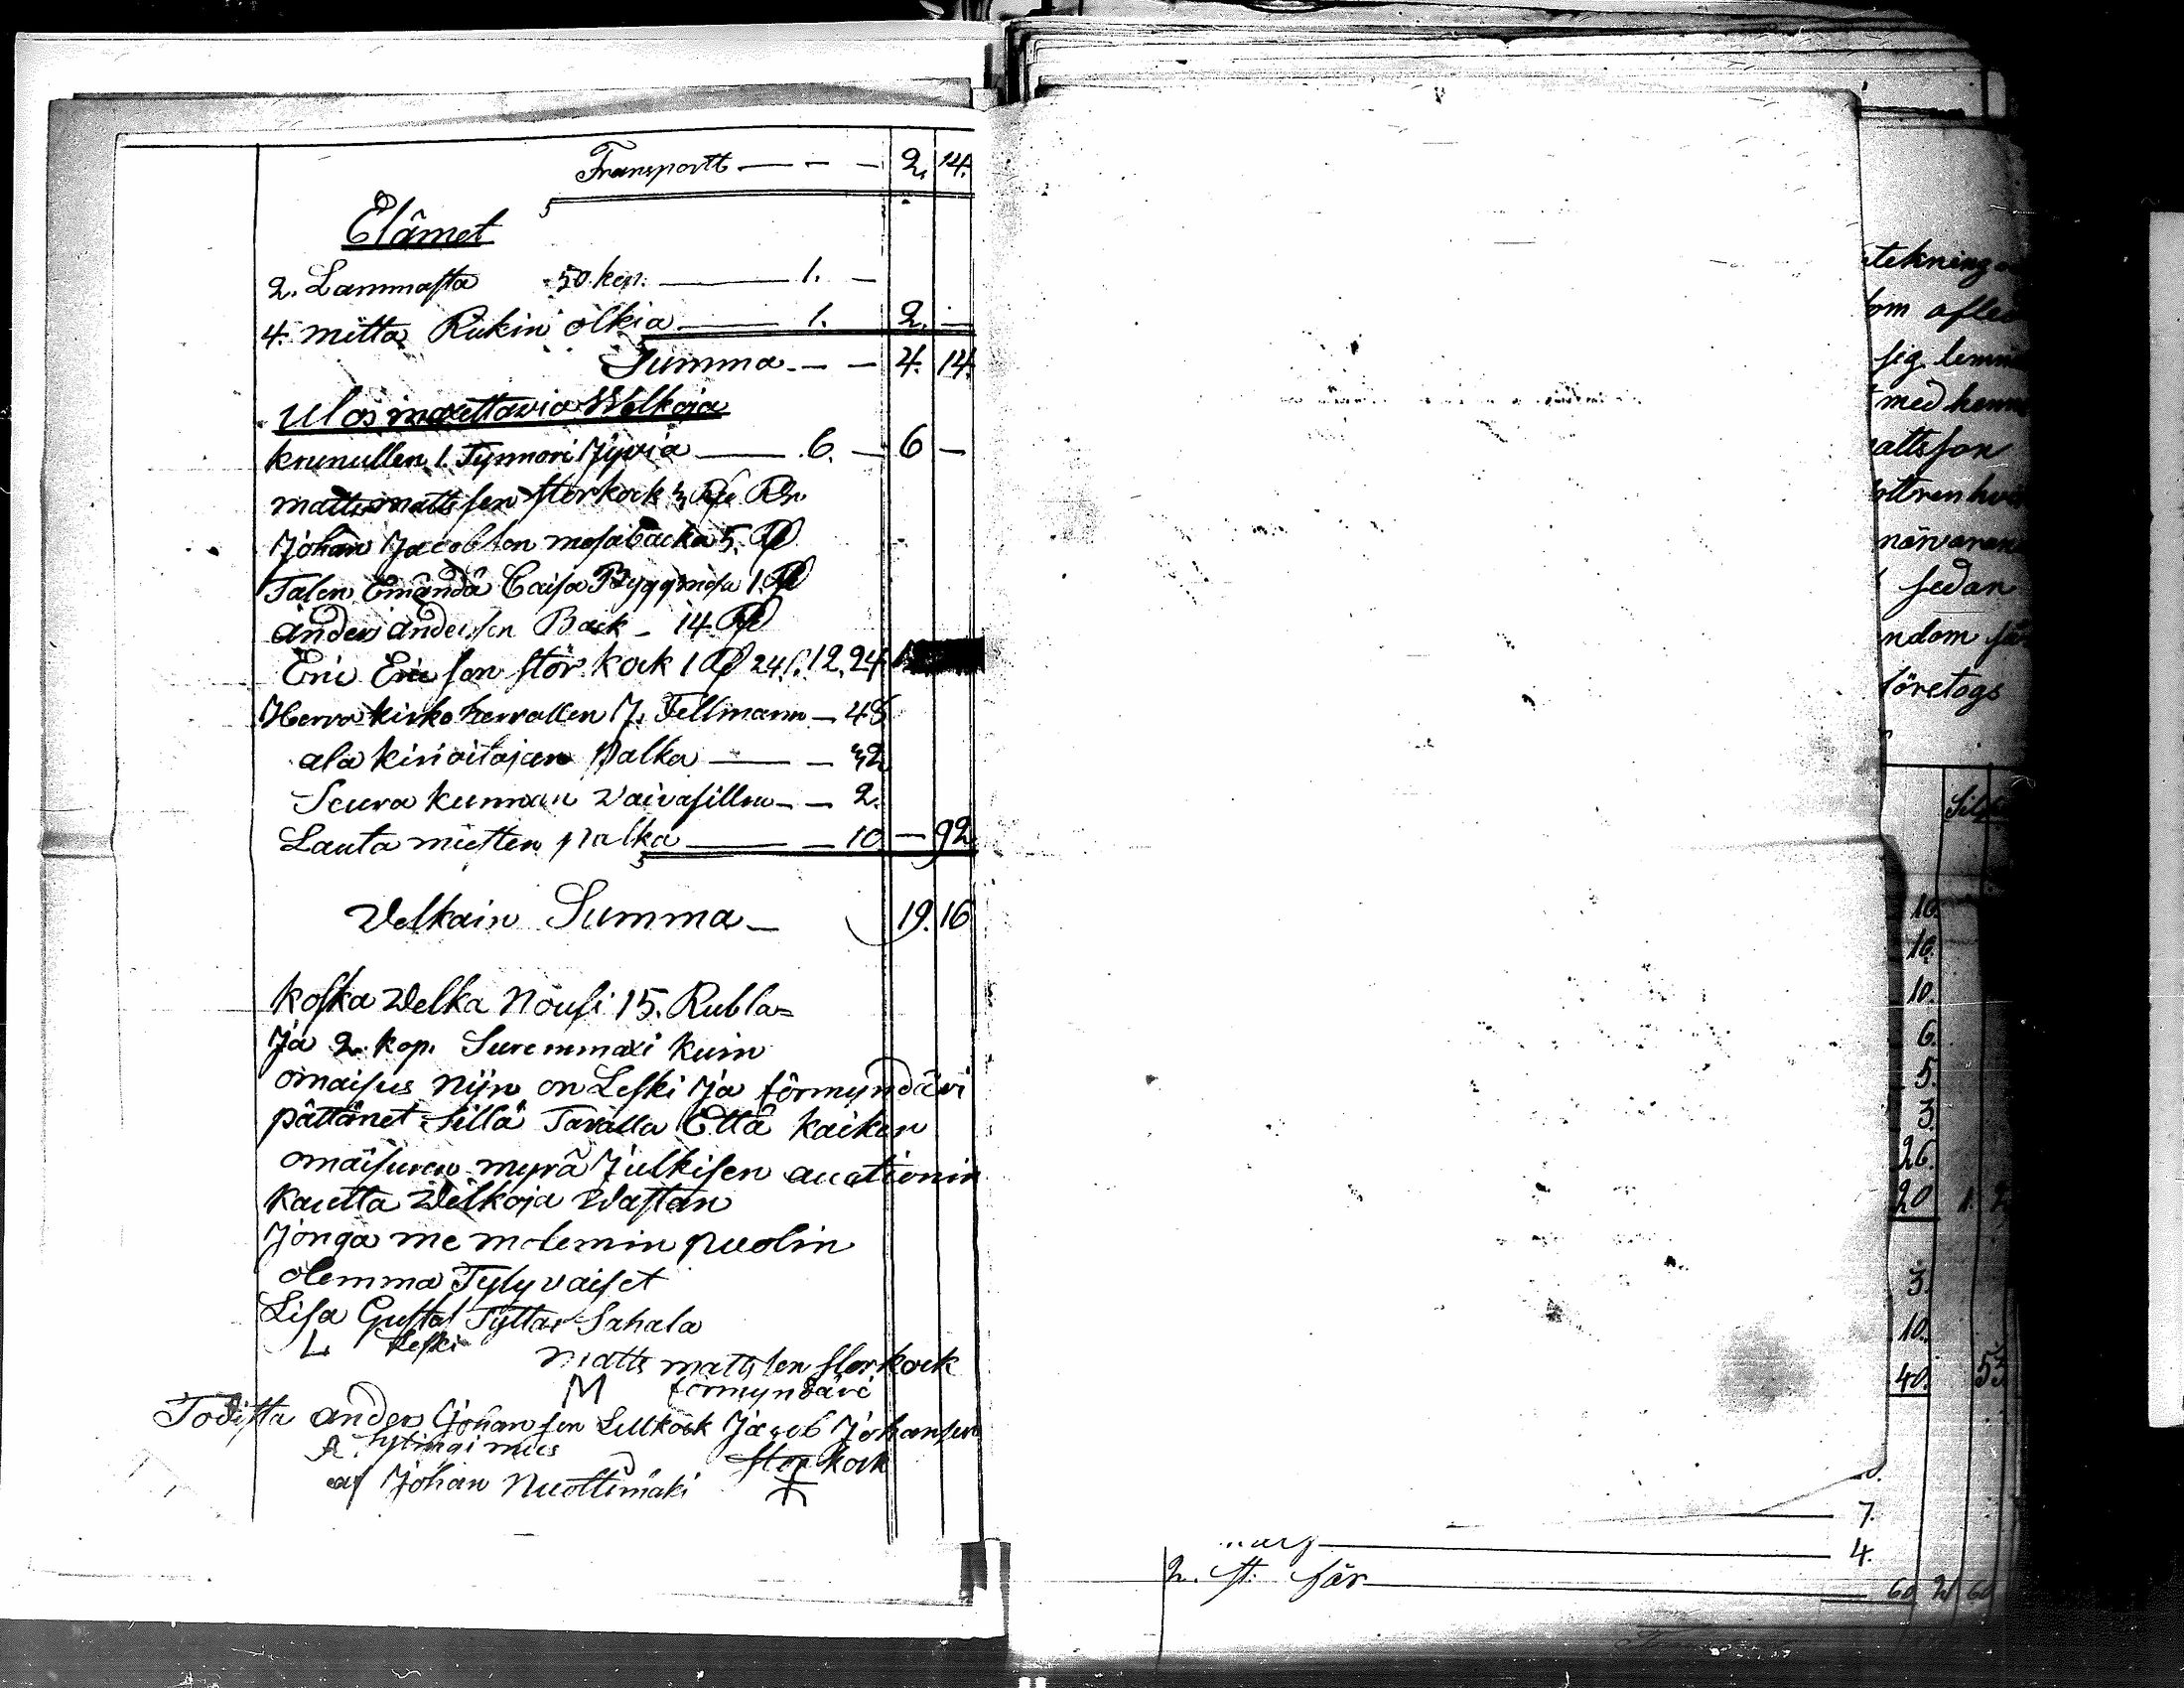 Transportt — — — 2. 14.
Elämet
2. Lammasta 50 kop. — 1. —
4. mitta Rukin olkia — 1. 2. —
Summa — — 4. 14.
Ulos maxettavia Welkoja
krunullen 1. Tynnöri Jyviä — 6. — 6 —
matts mattssen storkock 3
Johan Jacobsen mosabacka 5.
Talon Emändä Caisa Byggmesa 1.
anders anderssen Back - 14
Eric Ericsson stor kock 1 24 12. 24
Herra kirko herrallen J. Fellmann — 48
ala kirioitajan palka — — 32
Seura kunnan vaivasillen — — 2.
Lauta miesten palka — — 10 — 92
Velkain Summa — 19. 16
koska Welka Nousi 15. Rubla=
Ja 2 kop. Suremmaxi kuin
omaisus nijn on Leski Ja förmyndäri
pättänet sillä Tavalla Että kaiken
omaisuren myyä Julkisen auctionin
kautta Welkoja wastan
Jonga me molemin puolin
olemma Tytyvaiset
Lisa Gustaf Tyttar Sahala
L Leski
matts mattssen storkock
M förmyndäri
Todista anders Johansson Lillkock Jacob Johansen
A. sytingi mies stor kock
af Johan Nuottimäki
tekning
om afled
sig lemn
med hemm
attsson
ottren
närvaran
sedan
ndom
företogs
Silf
10.
10.
10.
6.
5.
3.
26.
20 1.
3.
10.
40. 53
7.
4.
2. st. får — 60 2 60